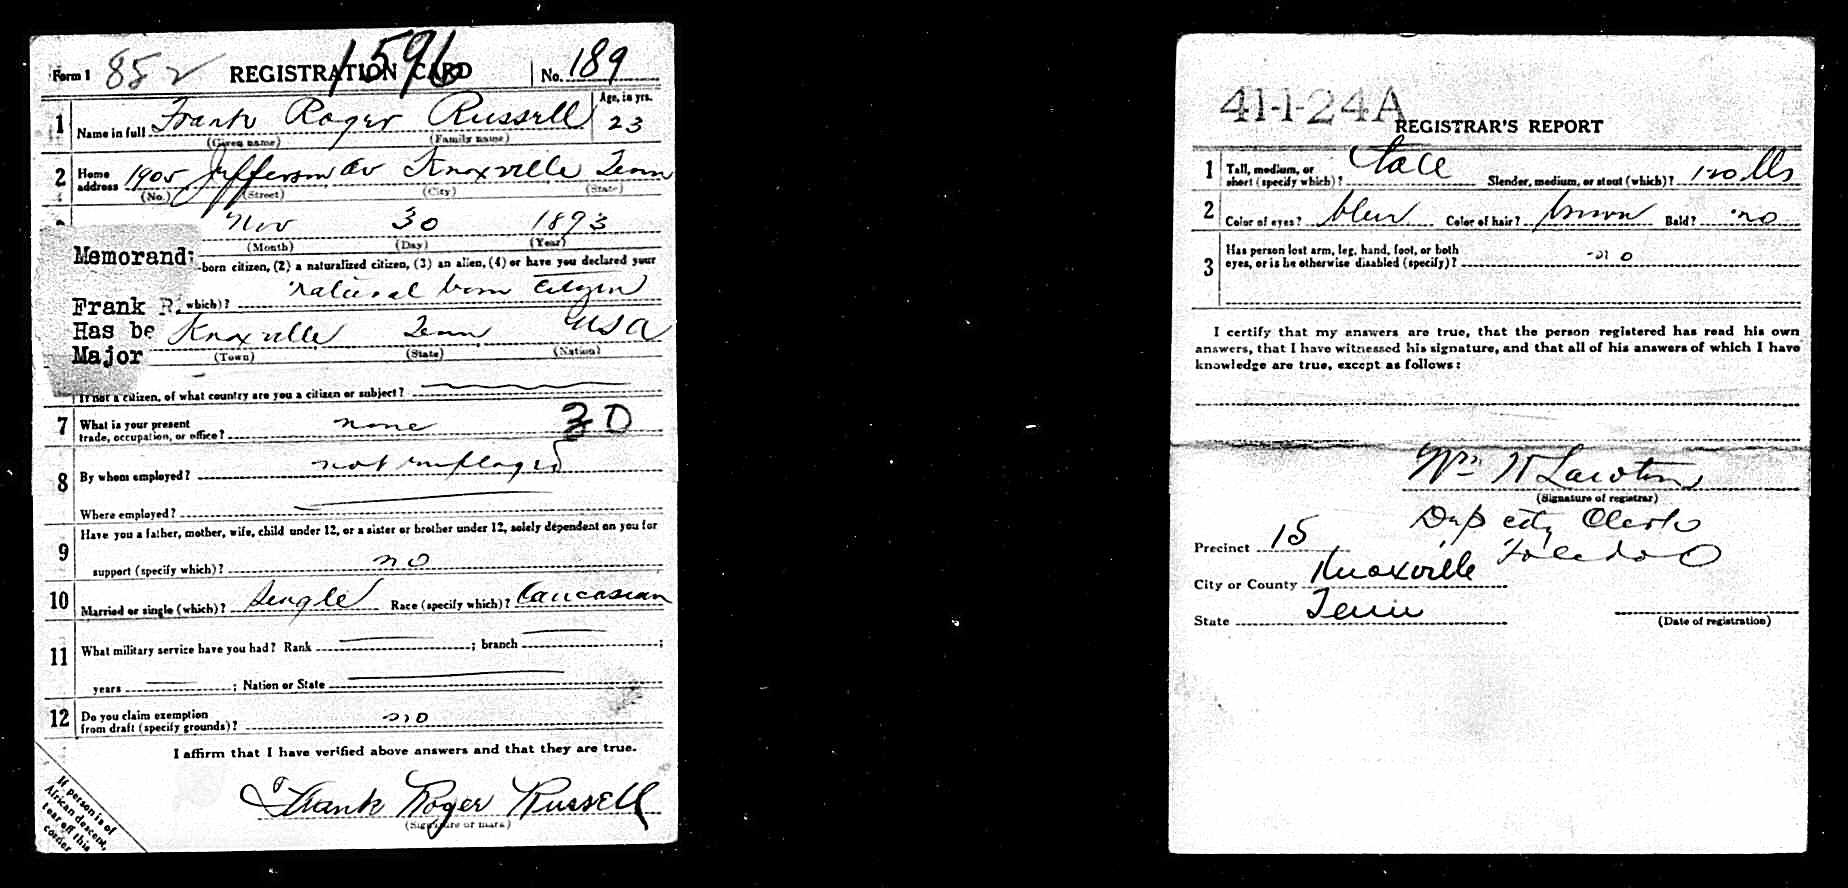 1596
Form 1 852 REGISTRATION CARD No. 189
1 Name in full Frank Roger Russell Age, in yrs. 23
(Given name) (Family name)
2 Home address 1905 Jefferson av Knoxville Tenn
(No.) (Street) (City) (State)
Nov 30 1893
(Month) (Day) (Year)
Memorand
-born citizen, (2) a naturalized citizen, (3) an alien, (4) or have you declared your
which)? natural born citizen
Frank R.
Has be
Knoxville Tenn USA
Major
(Town) (State) (Nation)
If not a citizen, of what country are you a citizen or subject?
7 What is your present
trade, occupation, or office? none 30
8 By whom employed? not employed
Where employed?
9 Have you a father, mother, wife, child under 12, or a sister or brother under 12, solely dependent on you for
support (specify which)? no
10 Married or single (which)? Single Race (specify which)? Caucasian
11 What military service have you had? Rank ; branch ;
years ; Nation or State
12 Do you claim exemption
from draft (specify grounds)? no
I affirm that I have verified above answers and that they are true.
Frank Roger Russell
(Signature or mark)
If person is of
African descent,
tear off this
corner
41-1-24A
REGISTRAR'S REPORT
1 Tall, medium, or
short (specify which)? Tall Slender, medium, or stout (which)? 120 lbs
2 Color of eyes? blue Color of hair? brown Bald? no
3 Has person lost arm, leg, hand, foot, or both
eyes, or is he otherwise disabled (specify)? no
I certify that my answers are true, that the person registered has read his own
answers, that I have witnessed his signature, and that all of his answers of which I have
knowledge are true, except as follows:
Wm H Lawton
(Signature of registrar)
Dep city Clerk
Toledo O
Precinct 15
City or County Knoxville
State Tenn
(Date of registration)